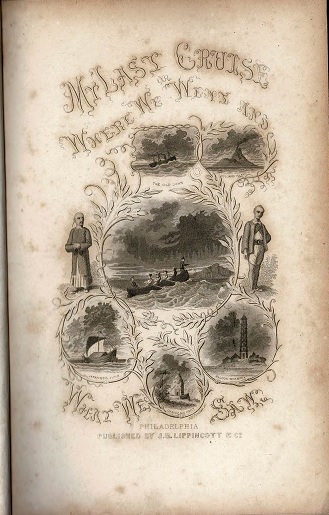 My Last Cruise
or
Where We Went and
What We Saw.
PHILADELPHIA
PUBLISHED BY J.B. LIPPINCOTT & CO